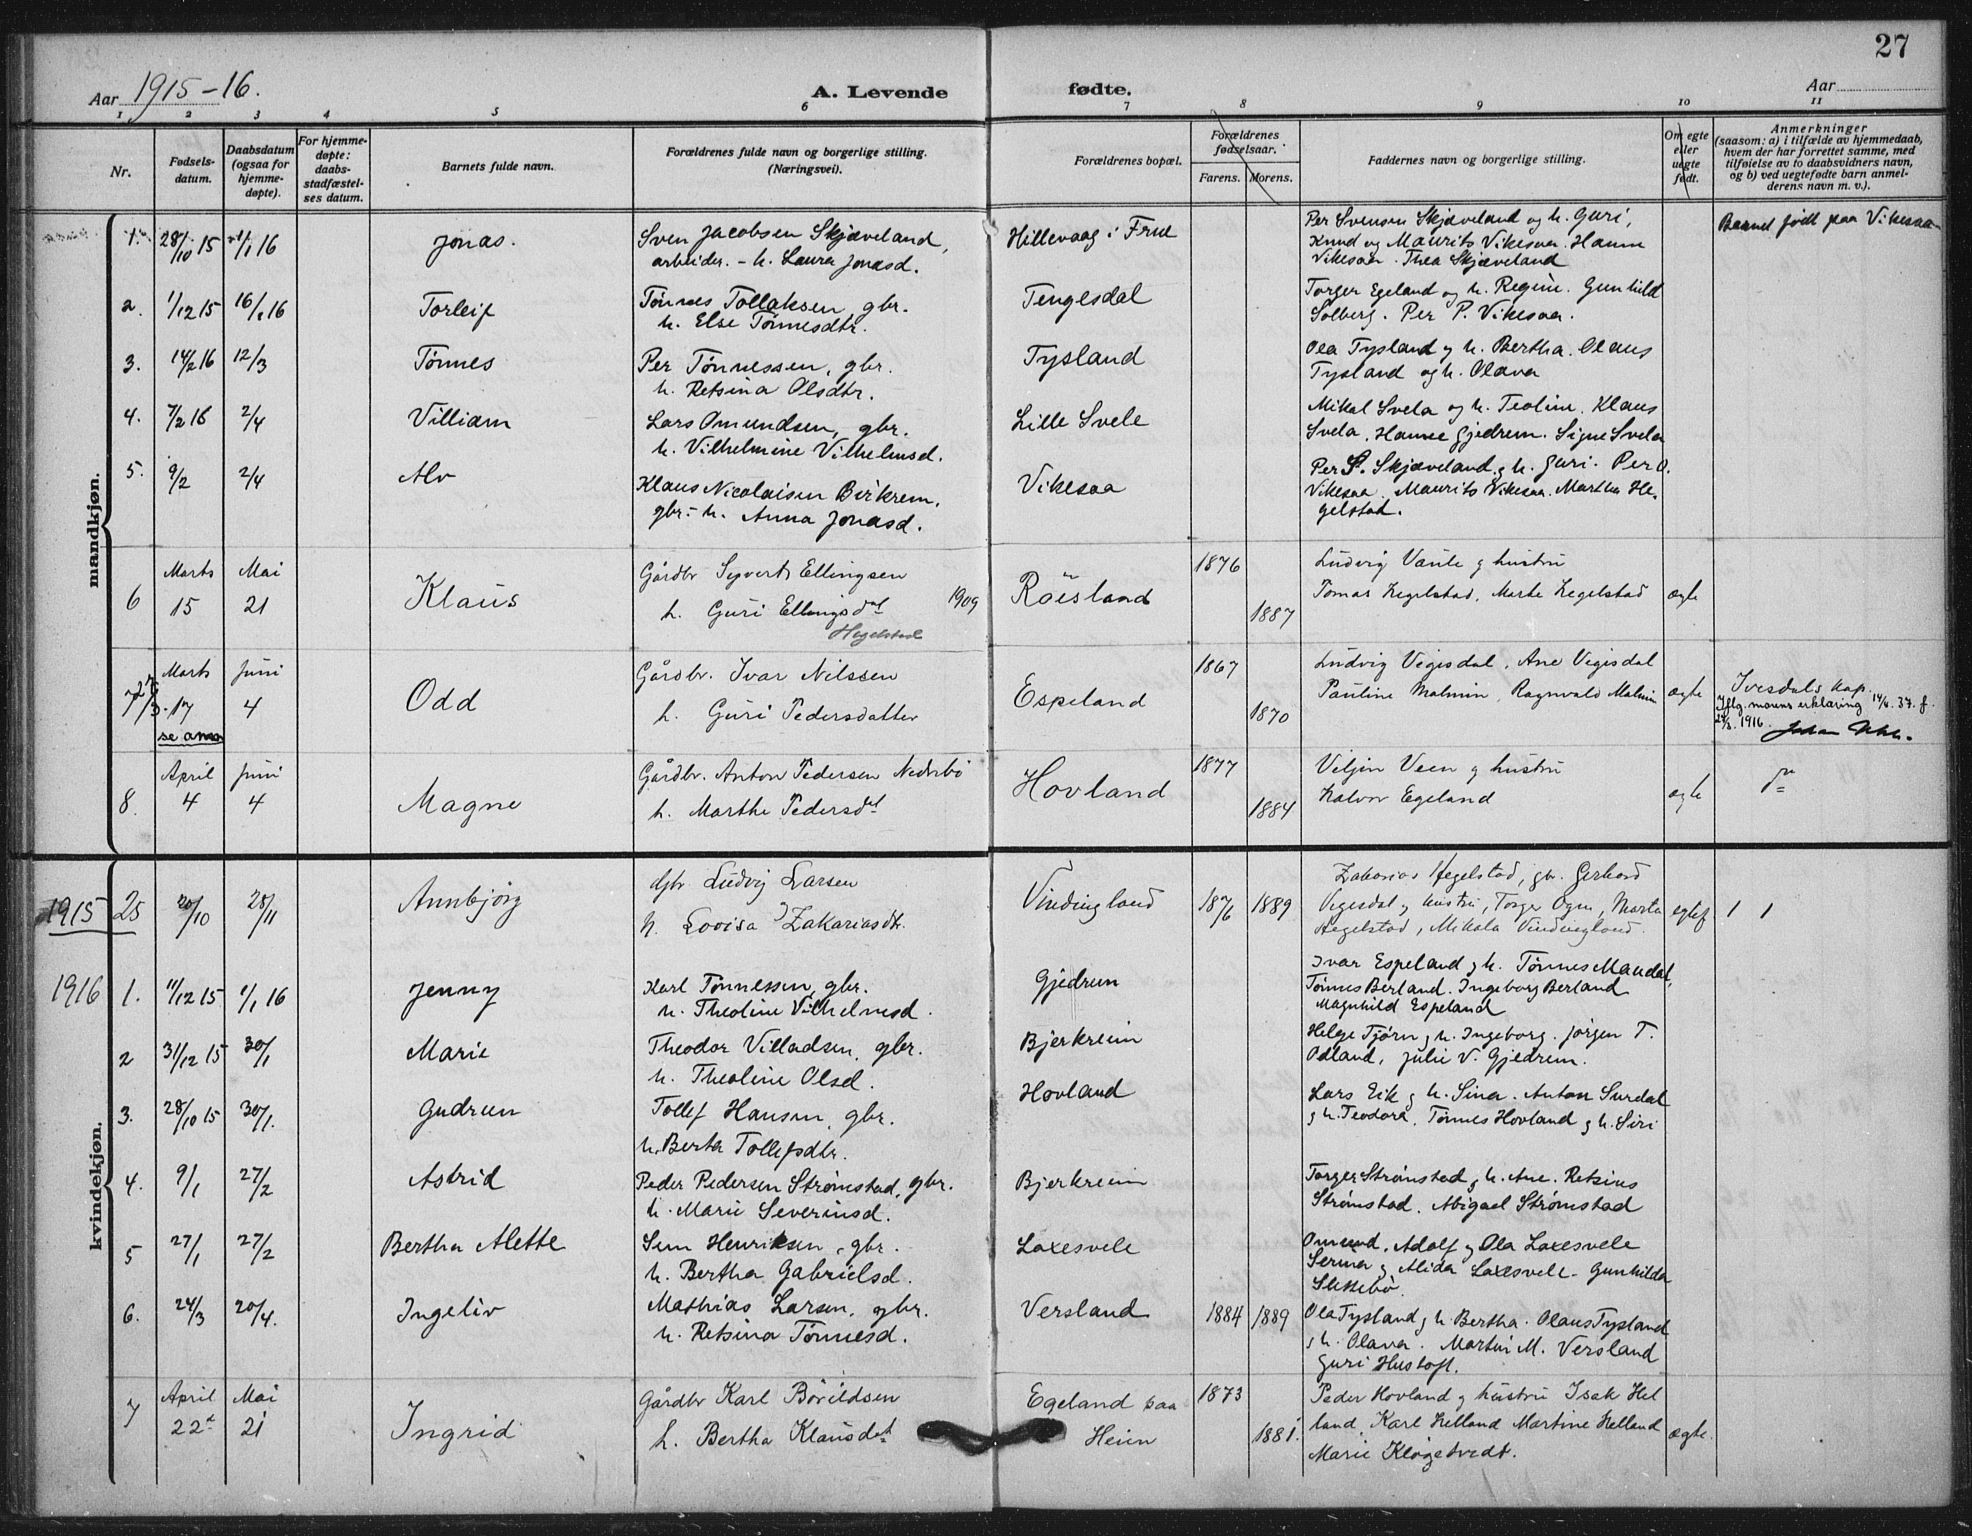 27
Aar 1915-16.
A. Levende fødte.
Aar
1 2 3 4 5 6 7 8 9 10 11
Nr.
Fødsels-
datum.
Daabsdatum
(ogsaa for
hjemme-
døpte).
For hjemme-
døpte:
daabs-
stadfæstel-
ses datum.
Barnets fulde navn.
Forældrenes fulde navn og borgerlige stilling.
(Næringsvei).
Forældrenes bopæl.
Forældrenes
fødselsaar.
Farens. Morens.
Faddernes navn og borgerlige stilling.
Om egte
eller
uegte
født.
Anmerkninger
(saasom: a) i tilfælde av hjemmedaab,
hvem der har forrettet samme, med
tilføielse av to daabsvidners navn,
og b) ved uegtefødte barn anmel-
derens navn m. v.).
mandkjøn.
1. 28/10 15 1/1 16 Jonas. Sven Jacobsen Skjæveland, Hillevaag i Frue Per Svensen Skjæveland og h. Guri, Barnet født paa Vikesaa
arbeider. - h. Laura Jonasd. Knud og Maurits Vikesaa. Hanna
Vikesaa. Thea Skjæveland
2. 1/12 15 16/1 16 Torleif Tønnes Tollaksen, gbr. Tengesdal Torger Egeland og h. Regine. Gunhild
h. Else Tønnesdtr. Solberg. Per P. Vikesaa.
3. 14/2 16 12/3 Tønnes Per Tønnessen, gbr. Tysland Ola Tysland og h. Bertha. Olaus
h. Retsina Olsdtr. Tysland og h. Olava
4. 7/2 16 2/4 Villiam Lars Omundsen, gbr. Lille Svele Mikal Svela og h. Teoline. Klaus
h. Vilhelmine Vilhelmsd. Svela. Hanne Gjedrem. Signe Svela
5. 9/2 2/4 Alv Klaus Nicolaisen Birkrem, Vikesaa Per S. Skjæveland og h. Guri. Per O.
gbr. - h. Anna Jonasd. Vikesaa. Maurits Vikesaa. Martha He-
gelstad.
6 Marts 15 Mai 21 Klaus Gårdbr Syvert Ellingsen 1909 Röisland 1876 Ludvig Vaule og hustru
h. Guri Ellingsdat 1887 Tomas Hegelstad, Marte Hegelstad ægte
Hegelstad
7 27/3 Marts 17 Juni 4 Odd Gårdbr. Ivar Nilssen Espeland 1867 Ludvig Vegisdal, Ane Vegisdal Ivesdals kap.
h. Guri Pedersdatter 1870 Pauline Malmin, Ragnvald Malmin ægte Iflg. morens erklæring 14/6. 37. f.
se anm 27/3. 1916.
8. April 4 Juni 4 Magne Gårdbr. Anton Pedersen Nedrebö Hovland 1877 Veljin Veen og hustru do
h. Marthe Pedersdat 1884 Halvor Egeland ægte
kvindekjøn.
1915 25 20/10 28/11 Annbjørg Gbr Ludvig Larsen Vindingland 1876 1889 Zakarias Hegelstad, gbr. Gerhard
h. Lovisa Zakariasdtr. Vegesdal og hustru, Torger Ogna, Marta egtef 1 1
Hegelstad, Mikala Vindingland.
1916 1. 11/12 15 1/1 16 Jenny Karl Tønnessen, gbr. Gjedrem Ivar Espeland og h. Tønnes Maudal,
h. Theoline Vilhelmsd. Tønnes Berland. Ingeborg Berland
Magnhild Espeland
2 31/12 15 30/1 Marie Theodor Villadsen, gbr. Bjerkreim Helge Tjørn og h. Ingeborg. Jørgen T.
h. Theoline Olsd. Odland, Julie V. Gjedrem.
3. 28/10 15 30/1. Gudrun Tollef Hansen, gbr. Hovland Lars Eik og h. Sina. Anton Surdal
h. Berta Tollefsdtr. og h. Teodora. Tønnes Hovland og h. Siri
4. 9/1 27/2 Astrid Peder Pedersen Strømstad, gbr. Bjerkreim Torger Strømstad og h. Ane. Retsius
h. Marie Severinsd. Strømstad. Abigael Strømstad
5 27/1 27/2 Bertha Alette Sem Henriksen, gbr. Laxesvele Omund, Adolf og Ola Laxesvele
h. Bertha Gabrielsd. Serina og Alida Laxesvele. Gunhilda
Slettebø.
6. 24/3 20/4. Ingeliv Mathias Larsen, gbr. Versland 1884 1889 Ola Tysland og h. Bertha. Olaus Tysland
h. Retsina Tønnesd. og h. Olava. Martin M. Versland
Guri Hustoft.
7 April 22 Mai 21 Ingrid Gårdbr Karl Börildsen Egeland paa 1873 Peder Hovland og hustru Isak Hel
h. Bertha Klausdat Heien 1881. land, Karl Helland Martine Helland ægte.
Marie Klögetvedt.